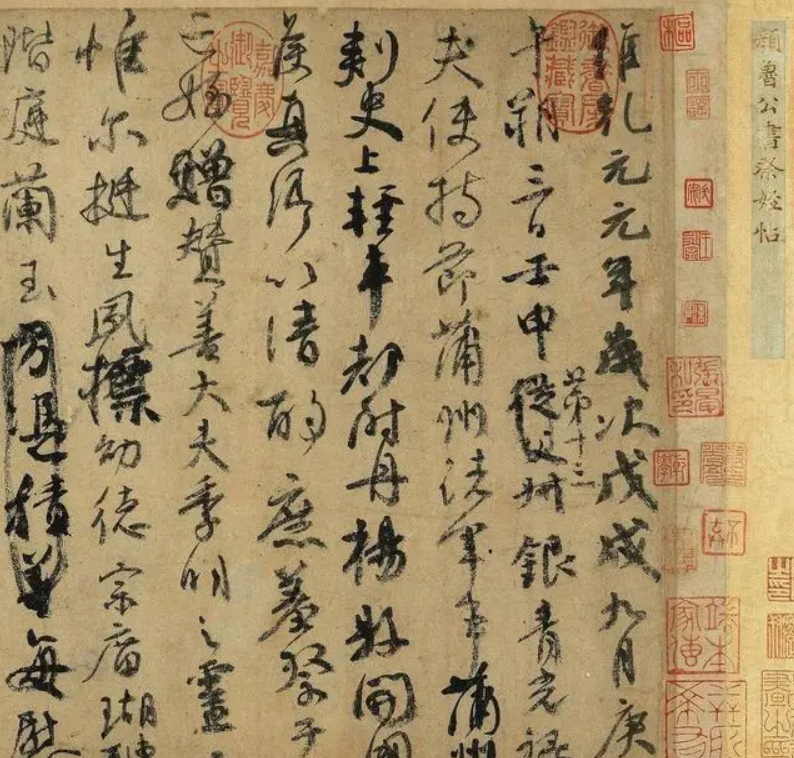 顏魯公書祭姪帖
維乾元元年歲次戊戌九月庚
午朔三日壬申從父叔銀青光祿
第十三
夫使持節蒲州諸軍事蒲州
刺史上輕車都尉丹楊縣開國
侯真卿以清酌庶羞祭于
亡姪贈贊善大夫季明之靈
惟爾挺生夙標幼德宗廟瑚璉
階庭蘭玉方憑積善每慰
御書房鑑藏寶
嘉慶御覽之寶